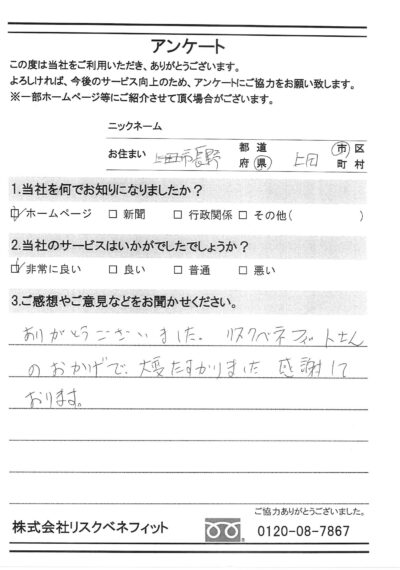 アンケート
この度は当社をご利用いただき、ありがとうございます。
よろしければ、今後のサービス向上のため、アンケートにご協力をお願い致します。
※一部ホームページ等にご紹介させて頂く場合がございます。
ニックネーム
お住まい 上田市長野 都道府県 上田 市区町村
1.当社を何でお知りになりましたか？
☑ホームページ □新聞 □行政関係 □その他( )
2.当社のサービスはいかがでしたでしょうか？
☑非常に良い □良い □普通 □悪い
3.ご感想やご意見などをお聞かせください。
ありがとうございました。リスクベネフィットさん
のおかげで、大変たすかりました 感謝して
おります。
ご協力ありがとうございました。
株式会社リスクベネフィット 0120-08-7867